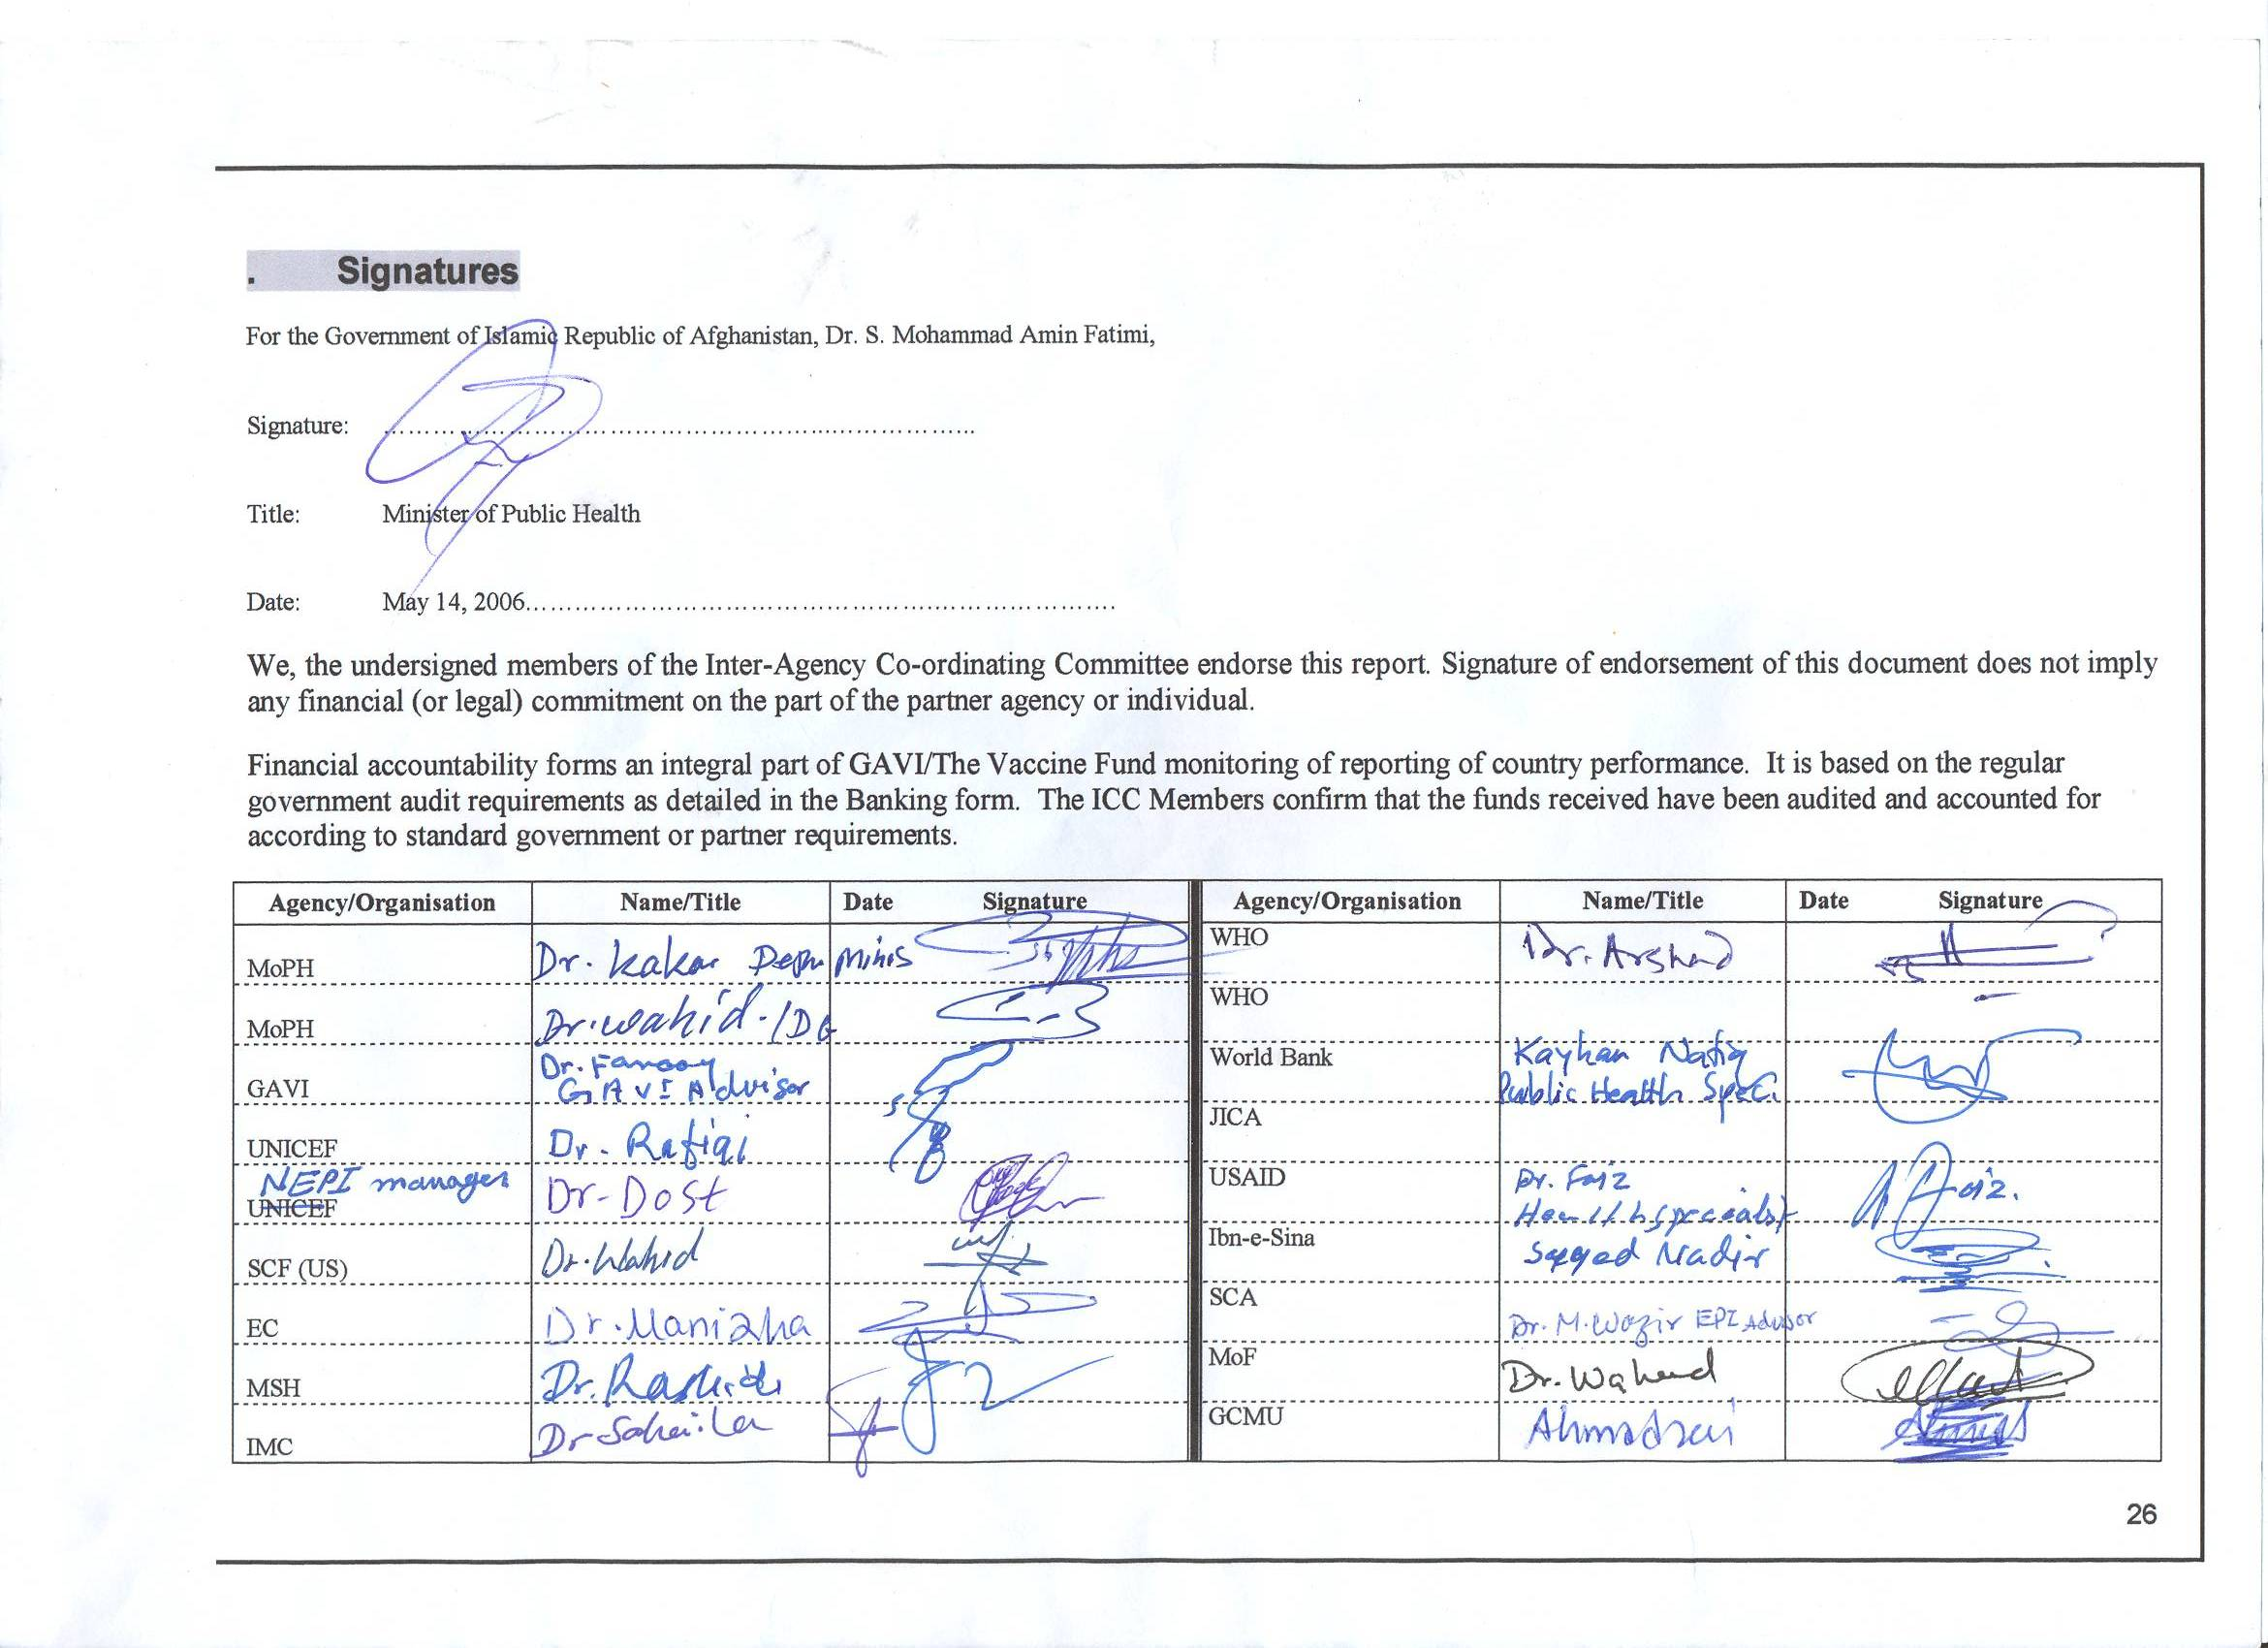 . Signatures
For the Government of Islamic Republic of Afghanistan, Dr. S. Mohammad Amin Fatimi,
Signature: ....................................................................
Title: Minister of Public Health
Date: May 14, 2006....................................................................
We, the undersigned members of the Inter-Agency Co-ordinating Committee endorse this report. Signature of endorsement of this document does not imply
any financial (or legal) commitment on the part of the partner agency or individual.
Financial accountability forms an integral part of GAVI/The Vaccine Fund monitoring of reporting of country performance. It is based on the regular
government audit requirements as detailed in the Banking form. The ICC Members confirm that the funds received have been audited and accounted for
according to standard government or partner requirements.
Agency/Organisation Name/Title Date Signature Agency/Organisation Name/Title Date Signature
MoPH Dr. Kakar Minis
MoPH Dr. Wahid - /DG
GAVI Dr. Farooq
GAVI Advisor
UNICEF Dr. Rafiqi
NEPI manager
UNICEF Dr-Dost
SCF (US) Dr. Wahid
EC Dr. Manizha
MSH Dr.
IMC Dr
WHO Dr. Arshad
WHO
World Bank Kayhan Natiq
Public Health Speci.
JICA
USAID Dr. Faiz
Faiz.
Ibn-e-Sina Sayed Nadir
SCA Dr. M. Wazir EPI Advisor
MoF Dr. Waheed
GCMU Ahmadzai
26